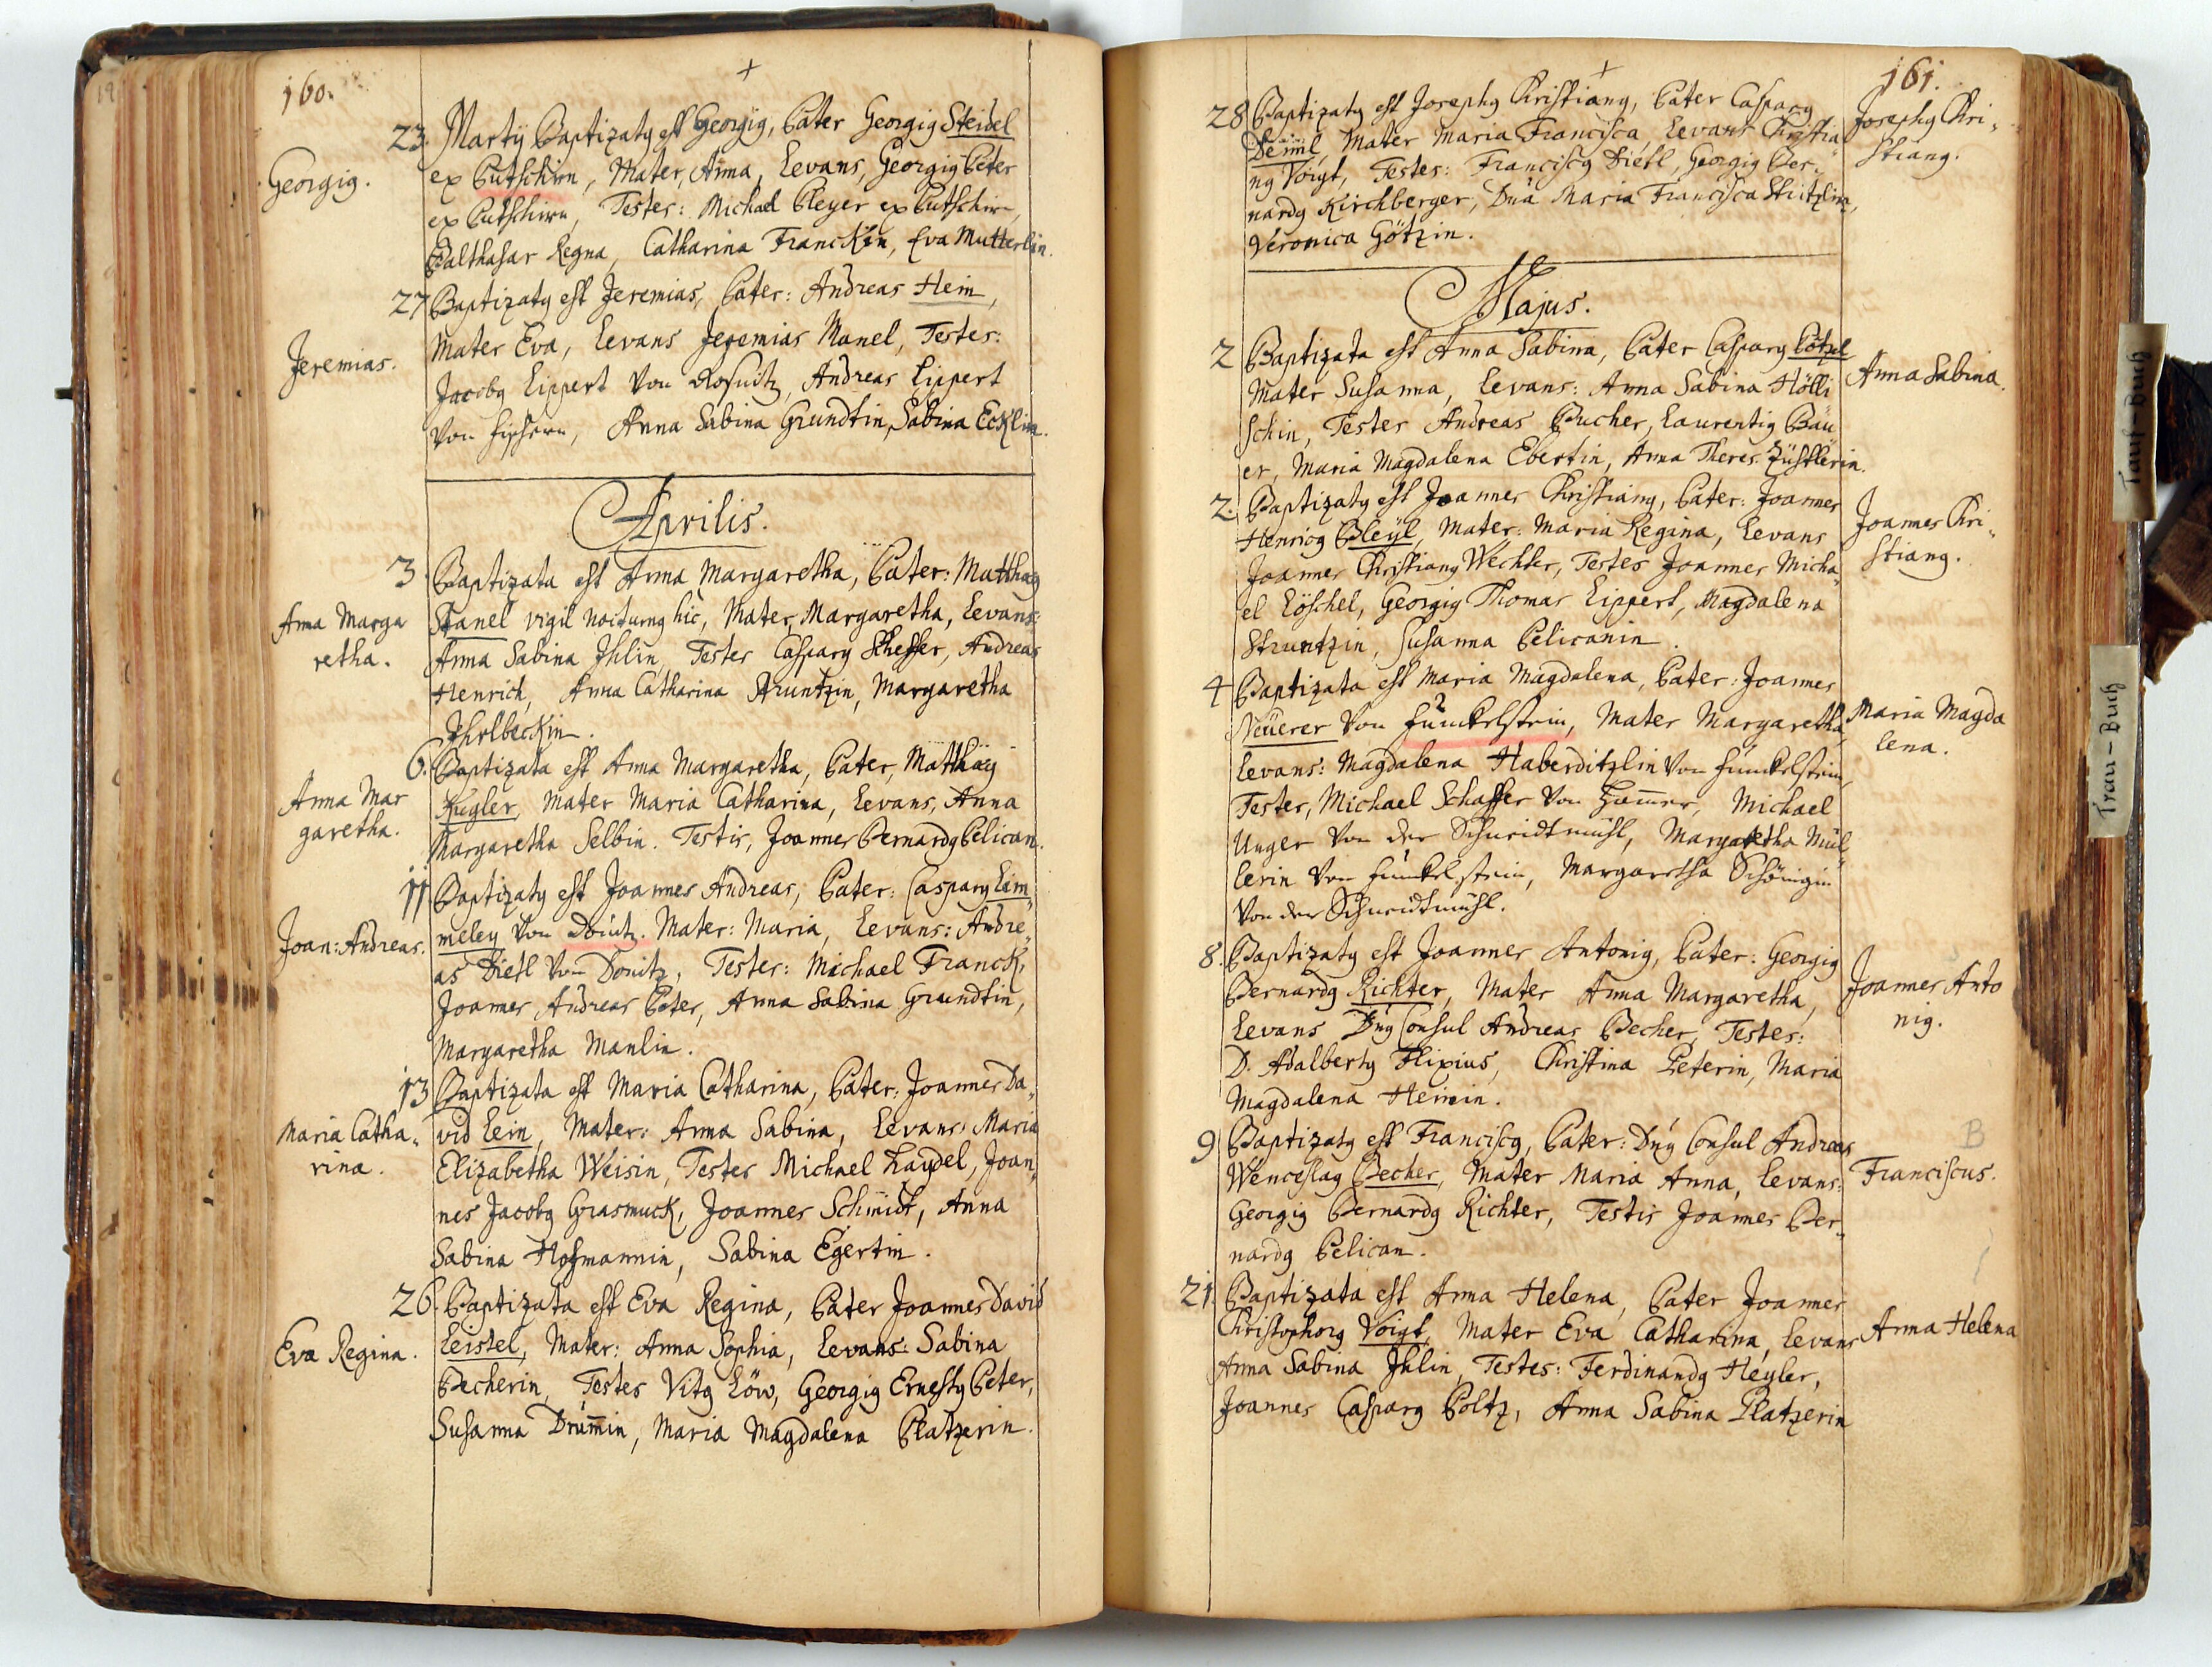 160.
+
23. Martÿ Baptizatg est Georgig, Pater Georgig Steidel
Georgig.
ex Putschirn, Mater, Anna, Levans, Georgig Peter
ex Putschirn, Testes: Michael Pleyer ex Putschirn,
Balthasar Regna, Catharina Franckin, Eva Mutterlin.
27 Baptizatg est Jeremias, Pater: Andreas Hein,
Jeremias.
Mater Eva, Levans Jeremias Manel, Testes:
Jacobg Lippert von Rosnitz, Andreas Lippert
von Fischern, Anna Sabina Grundtin, Sabina Ecklin.
Aprilis.
3 Baptizata est Anna Margaretha, Pater: Matthag
Anna Marga
retha.
Stanel vigil nocturng hic, Mater, Margaretha, Levans:
Anna Sabina Ihlin, Testes Casparg Scheffer, Andreas
Henrich, Anna Catharina Struntzin, Margaretha
Ihrlbeckin.
6. Baptizata est Anna Margaretha, Pater, Matthäg
Anna Mar
garetha.
Kugler, Mater Maria Catharina, Levans, Anna
Margaretha Selbin. Testis, Joannes Bernardg Pelican.
11 Baptizatg est Joannes Andreas, Pater: Casparg Lim"
Joan: Andreas.
meley von Donitz. Mater: Maria, Levans: Andre"
as Dietl von Donitz, Testes: Michael Franck,
Joannes Andreas Peter, Anna Sabina Grundtin,
Margaretha Manlin.
13 Baptizata est Maria Catharina, Pater: Joannes Da"
Maria Catha"
rina.
vid Lein, Mater: Anna Sabina, Levans: Maria
Elizabetha Weisin, Testes Michael Haydel, Joan"
nes Jacobg Grasmuck, Joannes Schmidt, Anna
Sabina Hofmannin, Sabina Egertin.
26. Baptizata est Eva Regina, Pater Joannes David
Eva Regina.
Leistel, Mater: Anna Sophia, Levans: Sabina
Becherin, Testes Vitg Löw, Georgig Ernestg Peter,
Susanna Drum̄in, Maria Magdalena Platzerin.
161.
+
28 Baptizatg est Josephg Christiang, Pater Casparg
Josephg Chri"
stiang.
Deiml Mater Maria Francisca, Levans Christia"
ng Voigt, Testes: Franciscg Dietl, Georgig Ber"
nardg Kirchberger, Dna Maria Francisca Stritzlin,
Veronica Götzin.
Majus.
2 Baptizata est Anna Sabina, Pater Casparg Pötzl
Anna Sabina.
Mater Susanna, Levans: Anna Sabina Hölli
schin, Testes Andreas Bucher, Laurentig Bau
er, Maria Magdalena Ebertin, Anna Theres. Züstlerin.
2. Baptizatg est Joannes Christiang, Pater: Joannes
Joannes Chri"
stiang.
Henricg Pleÿl, Mater: Maria Regina, Levans
Joannes Christiang Wechter, Testes Joannes Micha"
el Löschel, Georgig Thomas Lippert, Magdalena
Struntzin, Susanna Pelicanin.
4 Baptizata est Maria Magdalena, Pater: Joannes
Maria Magda
lena.
Neüerer von Funckelstein, Mater Margaretha,
Levans: Magdalena Haberditzlin von Funckelstein,
Testes, Michael Schaffer von Ham̄er, Michael
Unger von der Schneidtmühl, Margaretha Mül"
lerin von Funckelstein, Margaretha Schönigin
von der Schneidtmühl.
8. Baptizatg est Joannes Antonig, Pater: Georgig
Joannes Anto
nig.
Bernardg Richter, Mater Anna Margaretha,
Levans Dng Consul Andreas Becher, Testes:
D. Adalbertg Flixius, Christina Peterin, Maria
Magdalena Heinin.
B
9 Baptizatg est Franciscg, Pater: Dng Consul Andreas
Franciscus.
Wenceslag Becher, Mater Maria Anna, Levans:
Georgig Bernardg Richter, Testis Joannes Ber"
nardg Pelican.
21. Baptizata est Anna Helena, Pater Joannes
Anna Helena
Christophorg Voigt, Mater Eva Catharina, Levans
Anna Sabina Ihlin, Testes: Ferdinandg Heyler,
Joannes Casparg Poltz, Anna Sabina Platzerin
Tauf-Buch
Trau-Buch